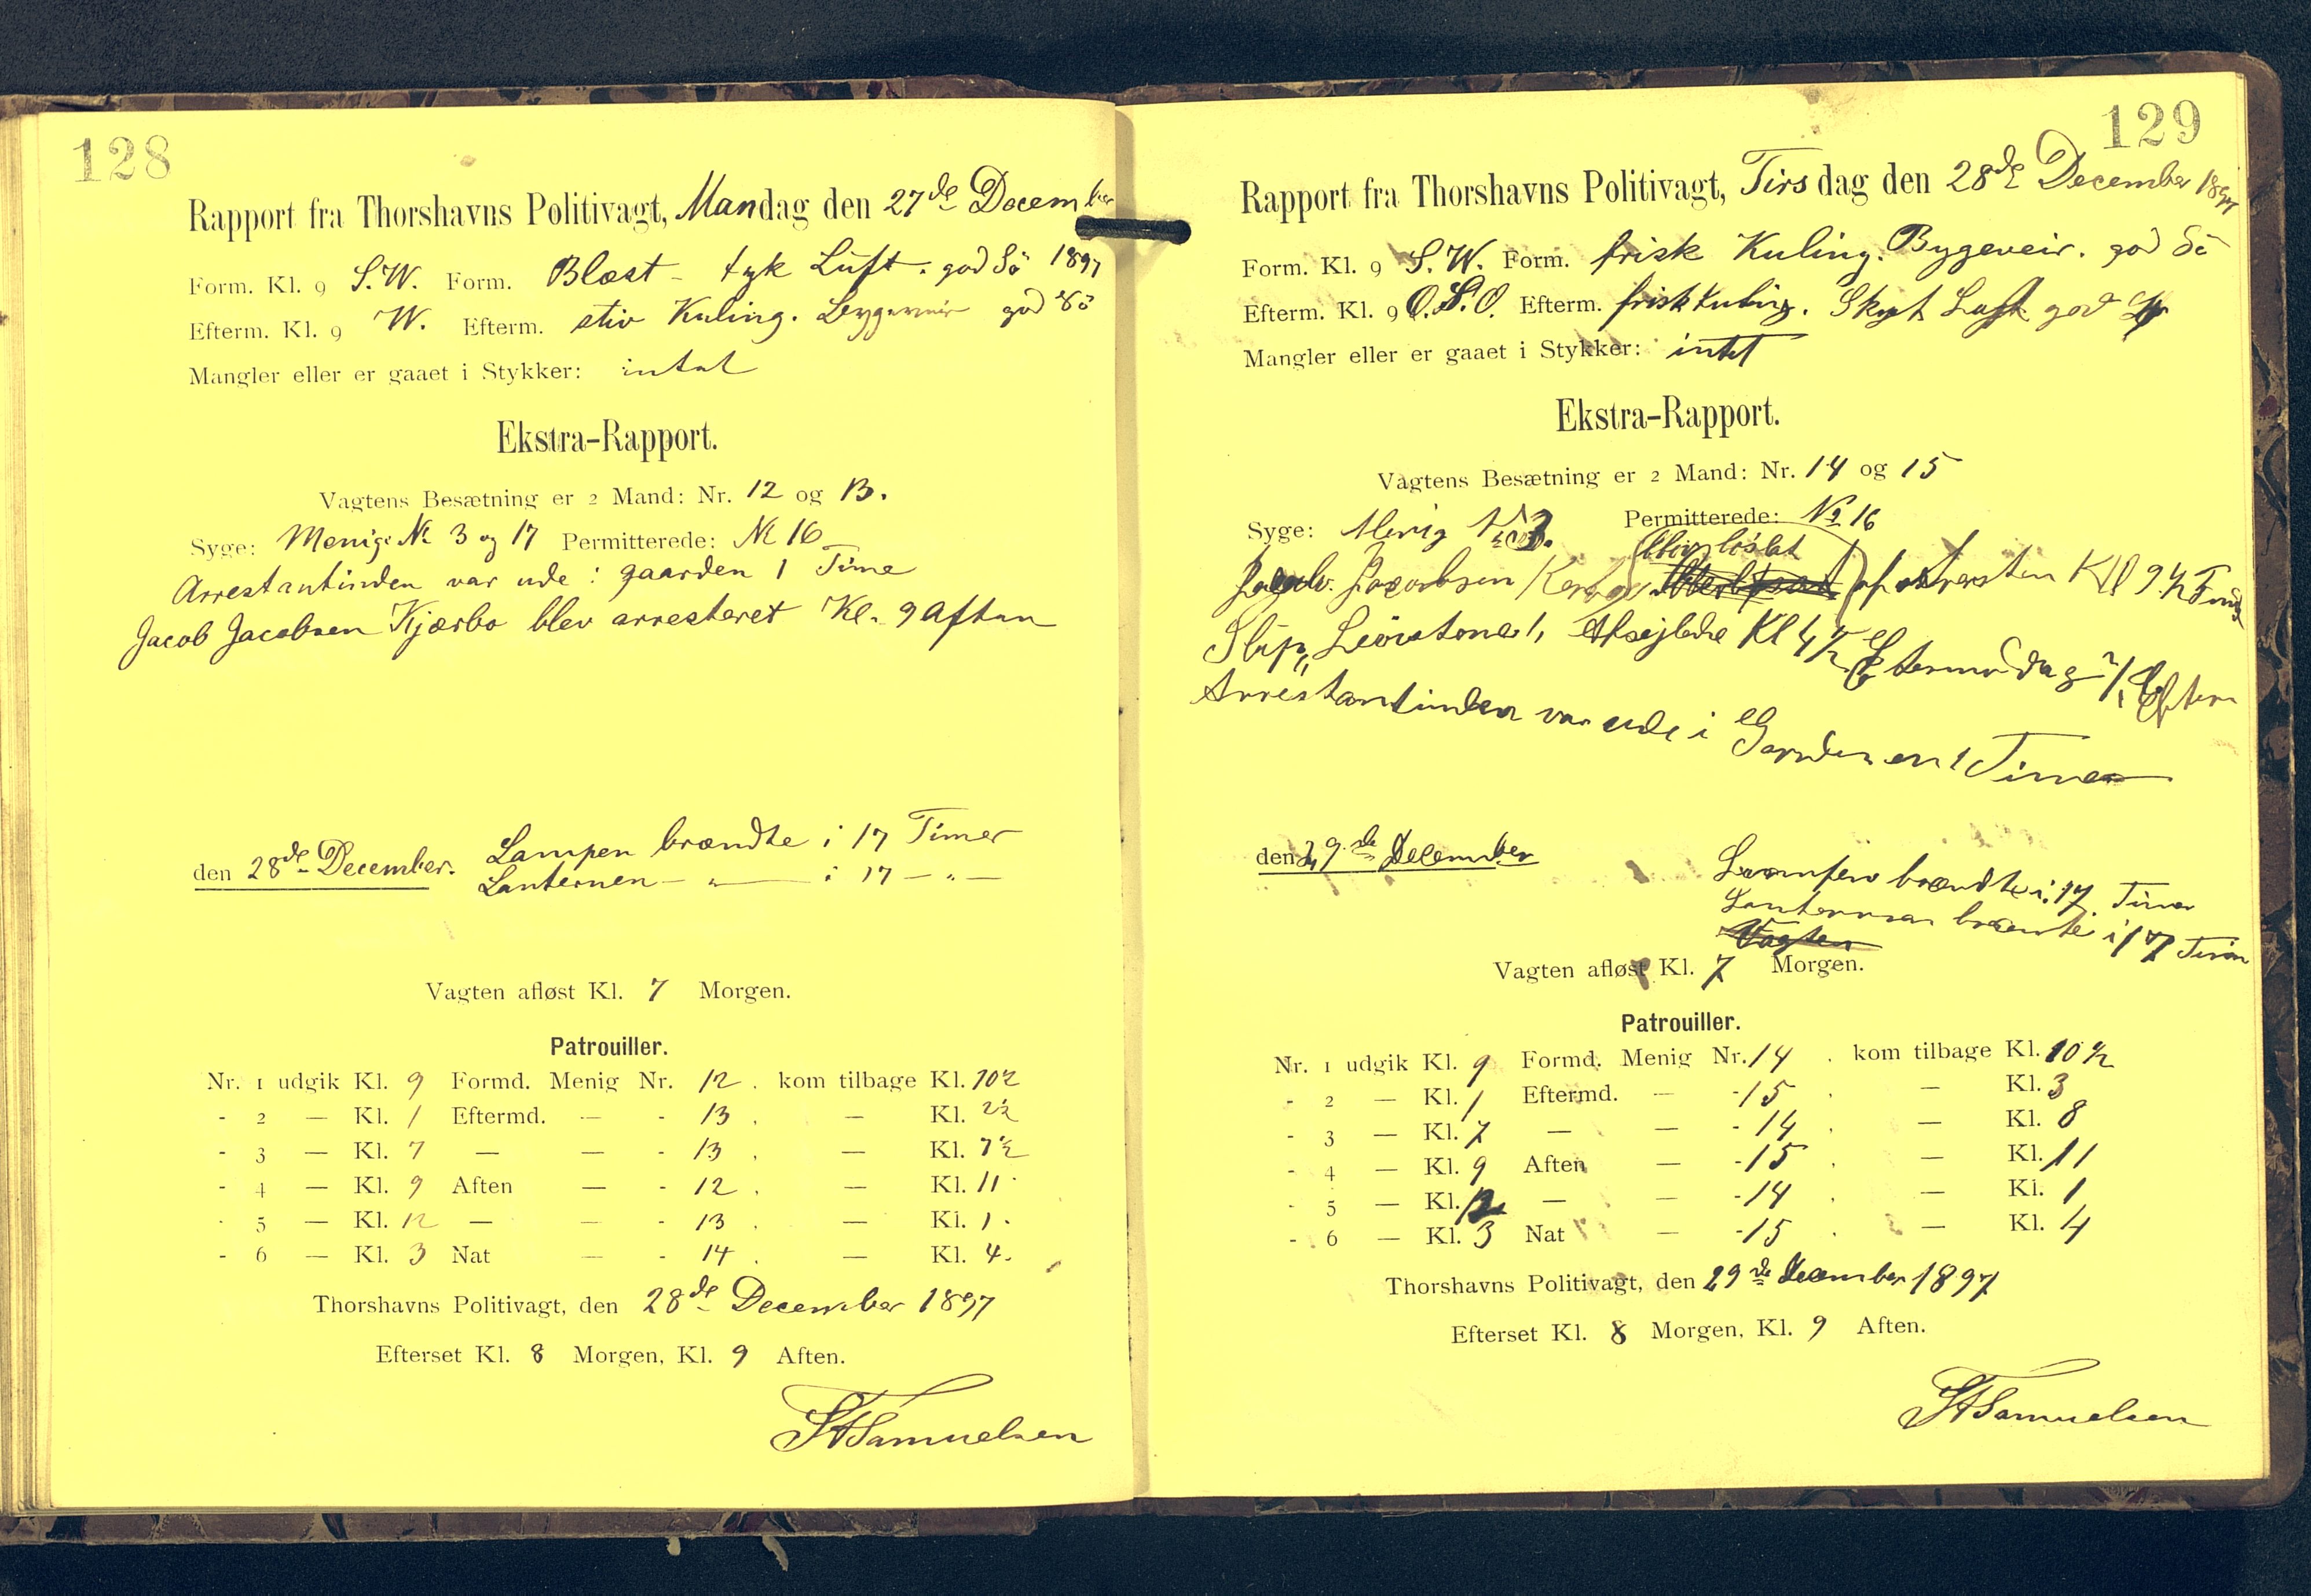 128
Rapport fra Thorshavns Politivagt, Mandag den 27de December
1897
Form. Kl. 9 S.W. Form. Blæst - tyk Luft. god Sö
Efterm. Kl. 9 W. Efterm. stiv Kuling. Bygeveir god Sö
Mangler eller er gaaet i Stykker: intet
Ekstra-Rapport.
Vagtens Besætning er 2 Mand: Nr. 12 og 13.
Syge: Menige № 3 og 17 Permitterede: № 16
Arrestantinden var ude i gaarden 1 Time
Jacob Jacobsen Kjærbo blev arresteret Kl. 9 Aften
den 28de December. Lampen brændte i 17 Timer
Lanternen - „ - i 17 - „ -
Vagten afløst Kl. 7 Morgen.
Patrouiller.
Nr. 1 udgik Kl. 9 Formd. Menig Nr. 12. kom tilbage Kl. 10½
- 2 — Kl. 1 Eftermd. — - 13. — Kl. 2½
- 3 — Kl. 7 — — - 13. — Kl. 7½
- 4 — Kl. 9 Aften — - 12. — Kl. 11
- 5 — Kl. 12 — — - 13. — Kl. 1.
- 6 — Kl. 3 Nat — - 14. — Kl. 4.
Thorshavns Politivagt, den 28de December 1897
Efterset Kl. 8 Morgen, Kl. 9 Aften.
Samuelsen
129
Rapport fra Thorshavns Politivagt, Tirsdag den 28de December 1897
Form. Kl. 9 S.W. Form. frisk Kuling. Bygeveir. god Sö
Efterm. Kl. 9 O.S.O. Efterm. frisk Kuling. Skyet Luft god
Mangler eller er gaaet i Stykker: intet
Ekstra-Rapport.
Vagtens Besætning er 2 Mand: Nr. 14 og 15
Syge: Menig № 3. Permitterede: № 16
blev löslat
Jacob Jacobsen af arresten Kl 9½ Formd
Slup „ Afsejlede Kl 4½
Arrestantinden var ude i Gaarden en 1 Time
den 29de December
Lampen brændte i 17 Timer
Lanternen brændte i 17 Timer
Vagten
Vagten afløst Kl. 7 Morgen.
Patrouiller.
Nr. 1 udgik Kl. 9 Formd. Menig Nr. 14. kom tilbage Kl. 10½
- 2 — Kl. 1 Eftermd. — - 15. — Kl. 3
- 3 — Kl. 7 — — - 14. — Kl. 8
- 4 — Kl. 9 Aften — - 15. — Kl. 11
- 5 — Kl. 12 — — - 14. — Kl. 1
- 6 — Kl. 3 Nat — - 15. — Kl. 4
Thorshavns Politivagt, den 29de December 1897
Efterset Kl. 8 Morgen, Kl. 9 Aften.
Samuelsen